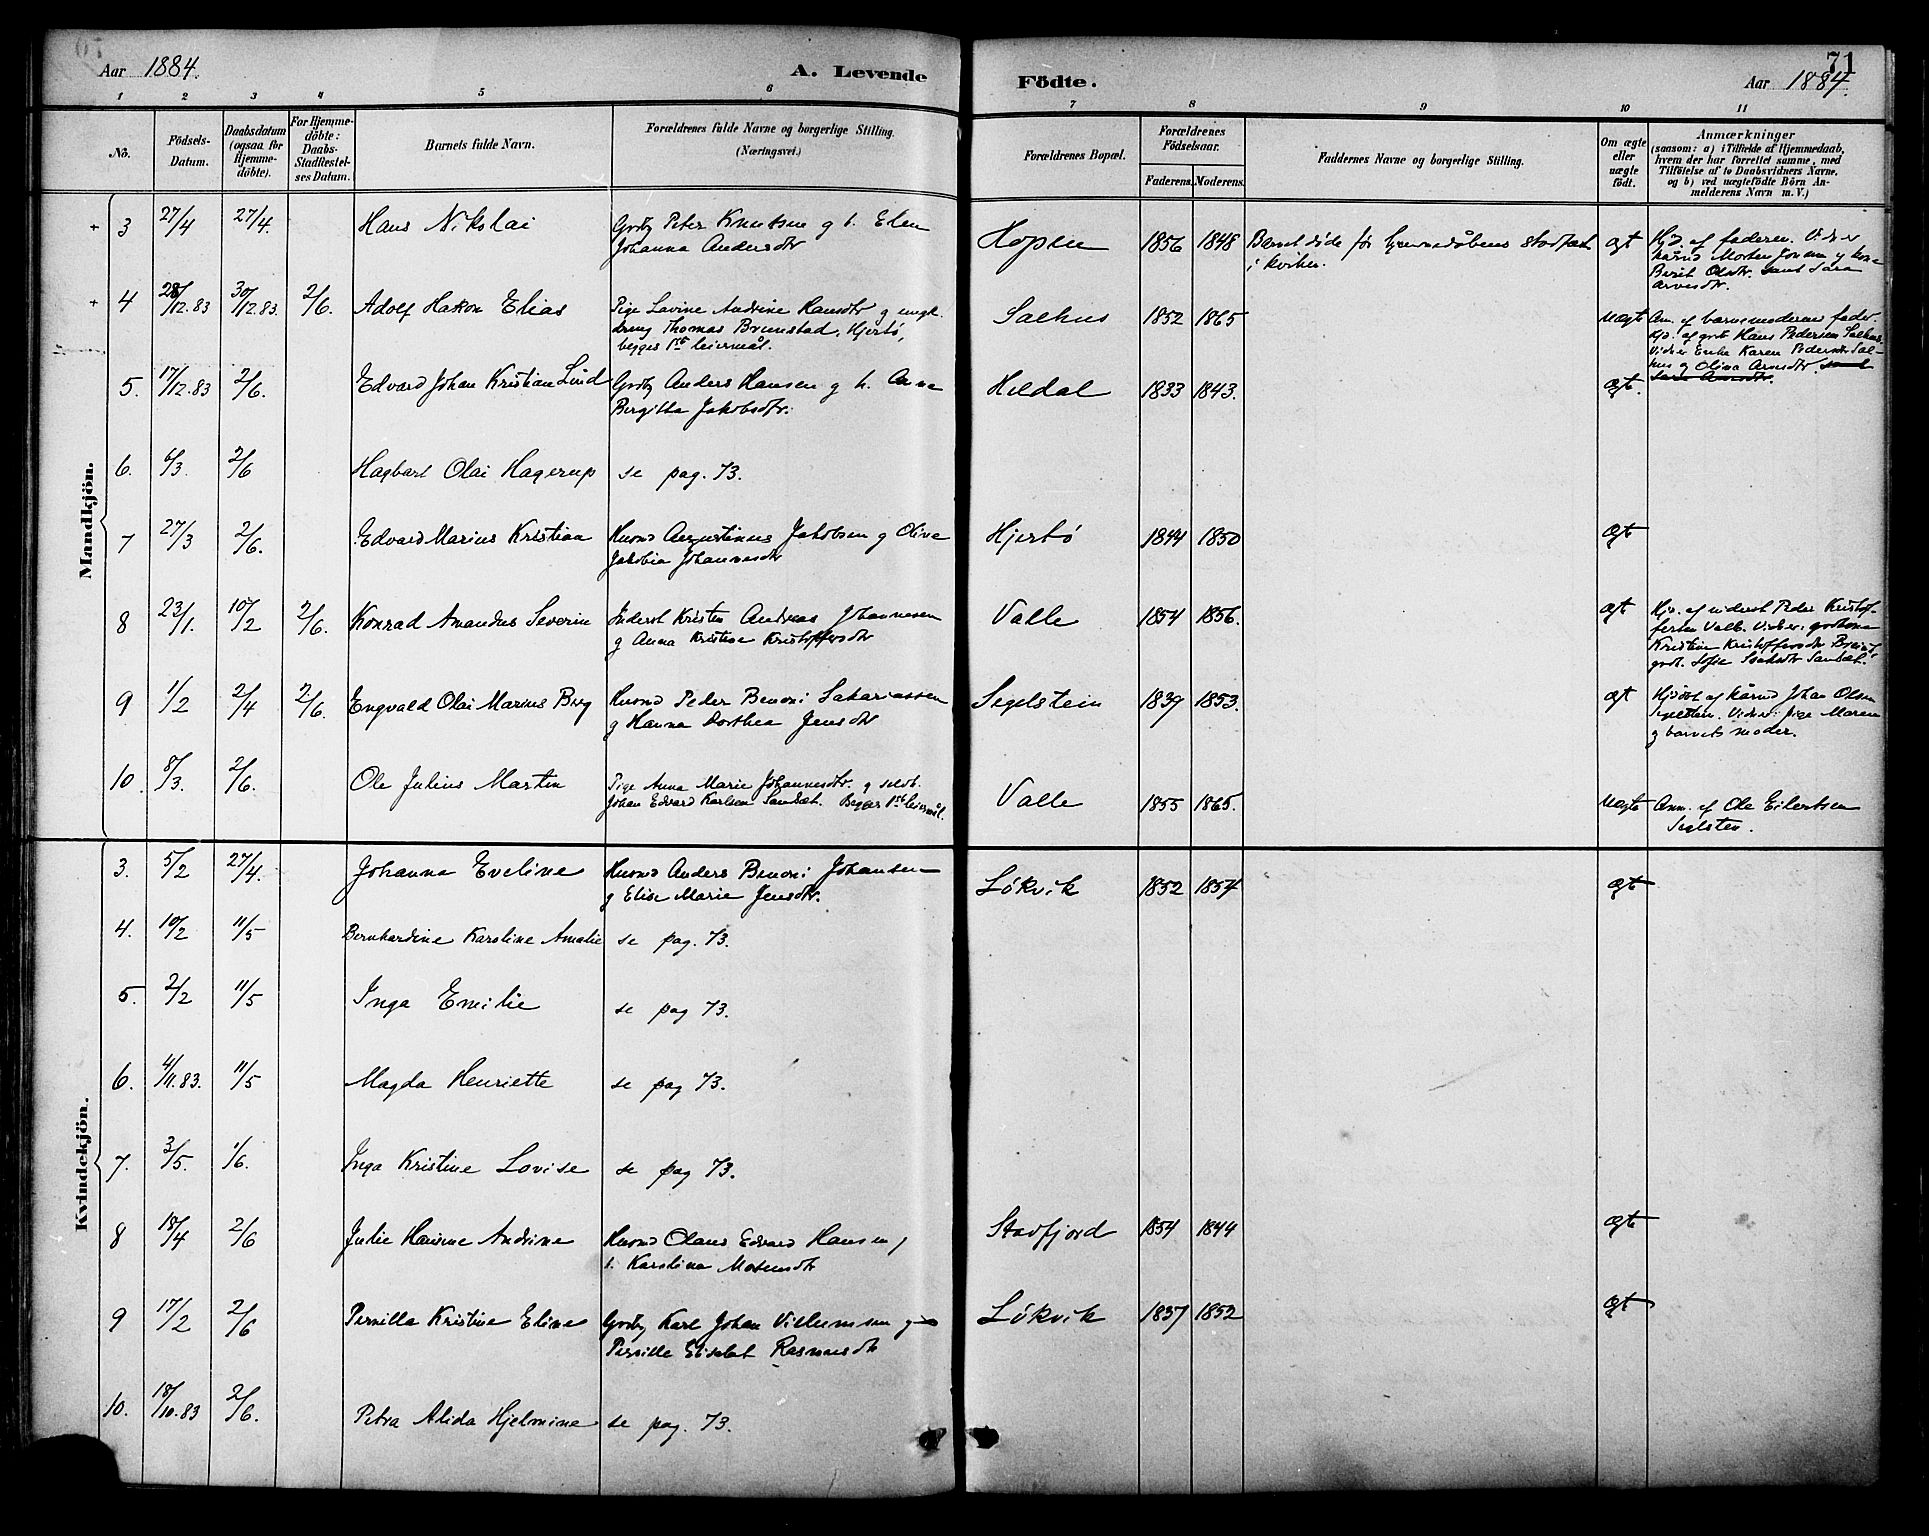 Aar 1884.
A. Levende
Födte.
71
Aar 1884.
1 2 3 4 5 6 7 8 9 10 11
No.
Födsels-
Datum.
Daabsdatum
(ogsaa for
Hjemme-
döbte).
For Hjemme-
döbte:
Daabs-
Stadfæstel-
ses Datum.
Barnets fulde Navn.
Forældrenes fulde Navne og borgerlige Stilling.
(Næringsvei.)
Forældrenes Bopæl.
Forældrenes
Födselsaar.
Faderens. Moderens.
Faddernes Navne og borgerlige Stilling.
Om ægte
eller
uægte
födt.
Anmærkninger
(saasom: a) i Tilfælde af Hjemmedaab,
hvem der har forrettet samme, med
Tilföielse af to Daabsvidners Navne,
og b) ved uægtefödte Börn An-
melderens Navn m. V.)
Mandkjön.
+ 3 27/4 27/4. Hans Nikolai Grdbr Peter Knutsen og h. Elen
Johanna Andersdtr
Hopen 1856 1848 Barnet døde før hjemmedåbens stadfæst
i kirken.
ægt Hjd. af faderen. Vidner
Morten Jonsen og kone
Berit Olsdtr. samt Sara
Arnesdtr.
+ 4 28/12.83 30/12.83. 2/6. Adolf Hakon Elias Pige Lavine Andrine Hansdtr og ungk.
dreng Thomas Brunstad, Hjertø,
begges 1ste leiermål.
Salhus 1852 1865 uægte An. af barnemoderens fader.
Hjd. af grdt Hans Pedersen Salhus.
Vidner Enke Karen Pedersdtr Sal-
hus og Olina Arnesdtr. samt
Sara Arnesdtr.
5. 17/12.83 2/6. Edvard Johan Kristian Lind Grdbr Anders Hansen og h. Anna
Bergitta Jakobsdtr.
Hildal 1833 1843. ægte.
6. 6/3. 2/6 Hagbart Olai Hagerup se pag. 73.
7 27/3 2/6. Edvard Marius Kristian Husmd Augustinus Jakobsen og Olina
Jakobia Johannesdtr
Hjertø 1844 1850 ægt
8 23/1. 10/2 2/6. Konrad Amandus Severin Inderst Kristen Andreas Johannesen
og Anna Kristine Kristoffersdtr
Valle 1854 1856. ægt Hjd. af inderst Peder Kristof-
fersen Valle. Vidner:
Kristine Kristoffersdtr
Sofie
9 1/2 2/4 2/6. Engvald Olai Marius Berg Husmd Peder Benoni Sakariassen
og Hanna Dorthea Jensdtr
Segelstein 1839 1853. ægt Hjdøbt af Johan Olsen
Segelstein. Vidner: pige Maren
og barnets moder.
10. 8/3. 2/6. Ole Julius Martin Pige Anna Marie Johannesdtr. og
Johan Edvard Karlsen Sandsæt. Begges 1ste leiermål.
Valle 1855 1865. uægte Anm. af Ole Eilertsen
Seglsten.
Kvindekjön.
3. 5/2 27/4. Johanna Eveline Husmd Anders Benoni Johansen
og Elise Marie Jensdtr.
Løkvik 1852 1854 ægt
4. 10/2 11/5 Bernhardine Karoline Amalie se pag. 73.
5. 2/2 11/5 Inga Emilie se pag 73.
6. 4/11.83. 11/5 Magda Henriette se pag 73.
7. 3/5. 1/6. Inga Kristine Lovise se pag 73.
8 18/4 2/6 Julie Hansine Andrine Husmd Olaus Edvard Hansen og
h. Karolina Mortensdtr
Stavfjord 1854 1844 ægte
9 17/2 2/6 Pernilla Kristine Eline Grdbr Karl Johan Villumsen og
Pernille Elisabet Rasmusdtr
Løkvik 1837 1852 ægt
10. 18/10.83 2/6. Petra Alida Hjelmine se pag. 73.